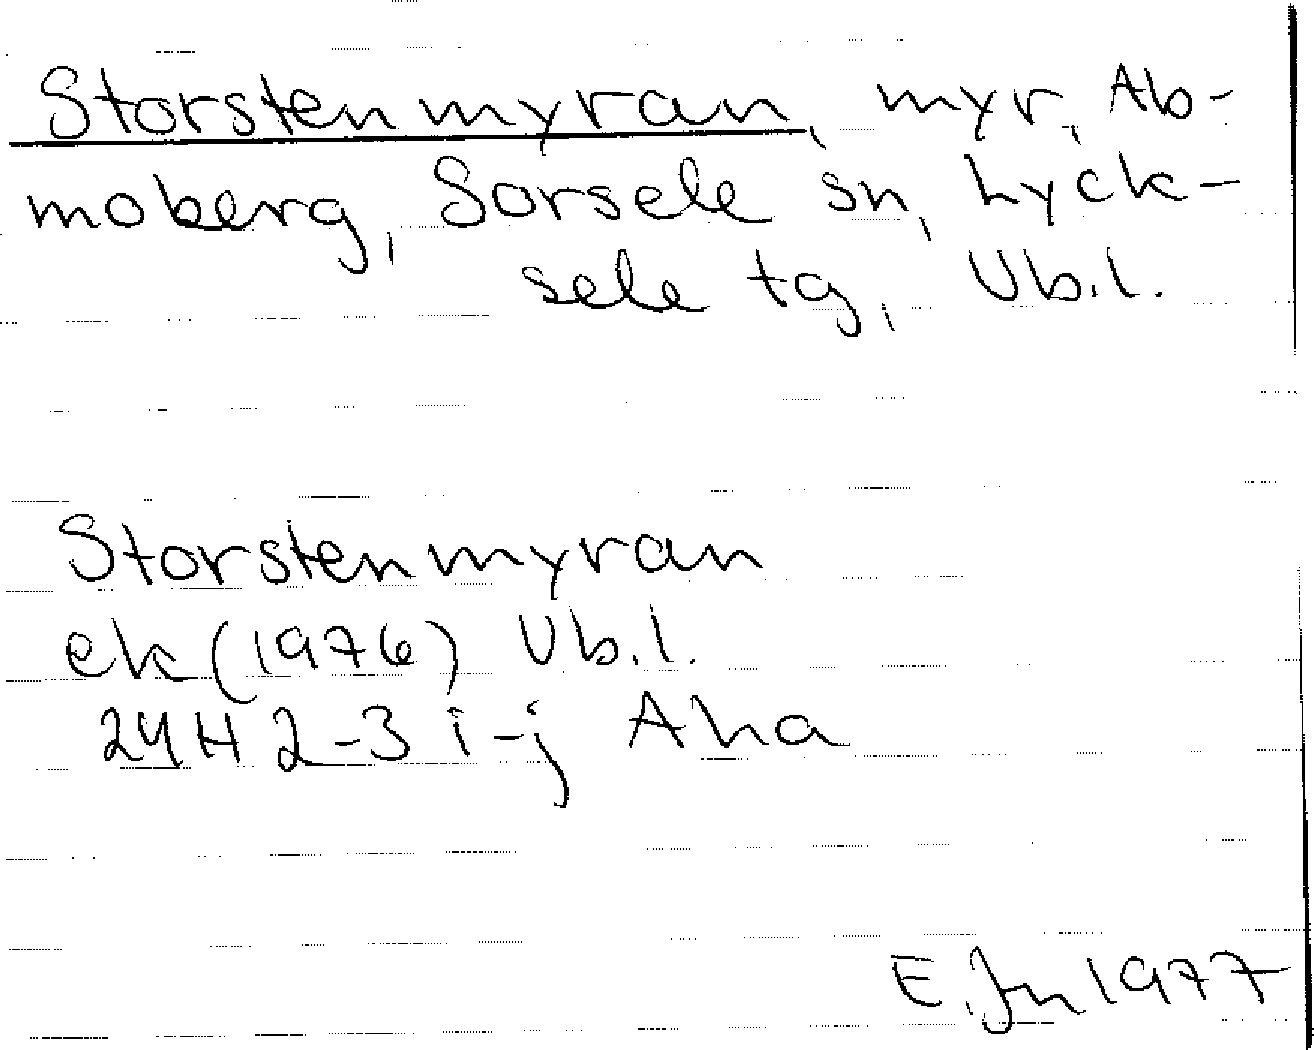 Storstenmyran, myr, Ab-
moberg, Sorsele sn, Lyck-
sele tg, Vb.l.
Storstenmyran
ek (1976) Vb.l.
24H 2-3 i-j Aha
E. Jn 1977